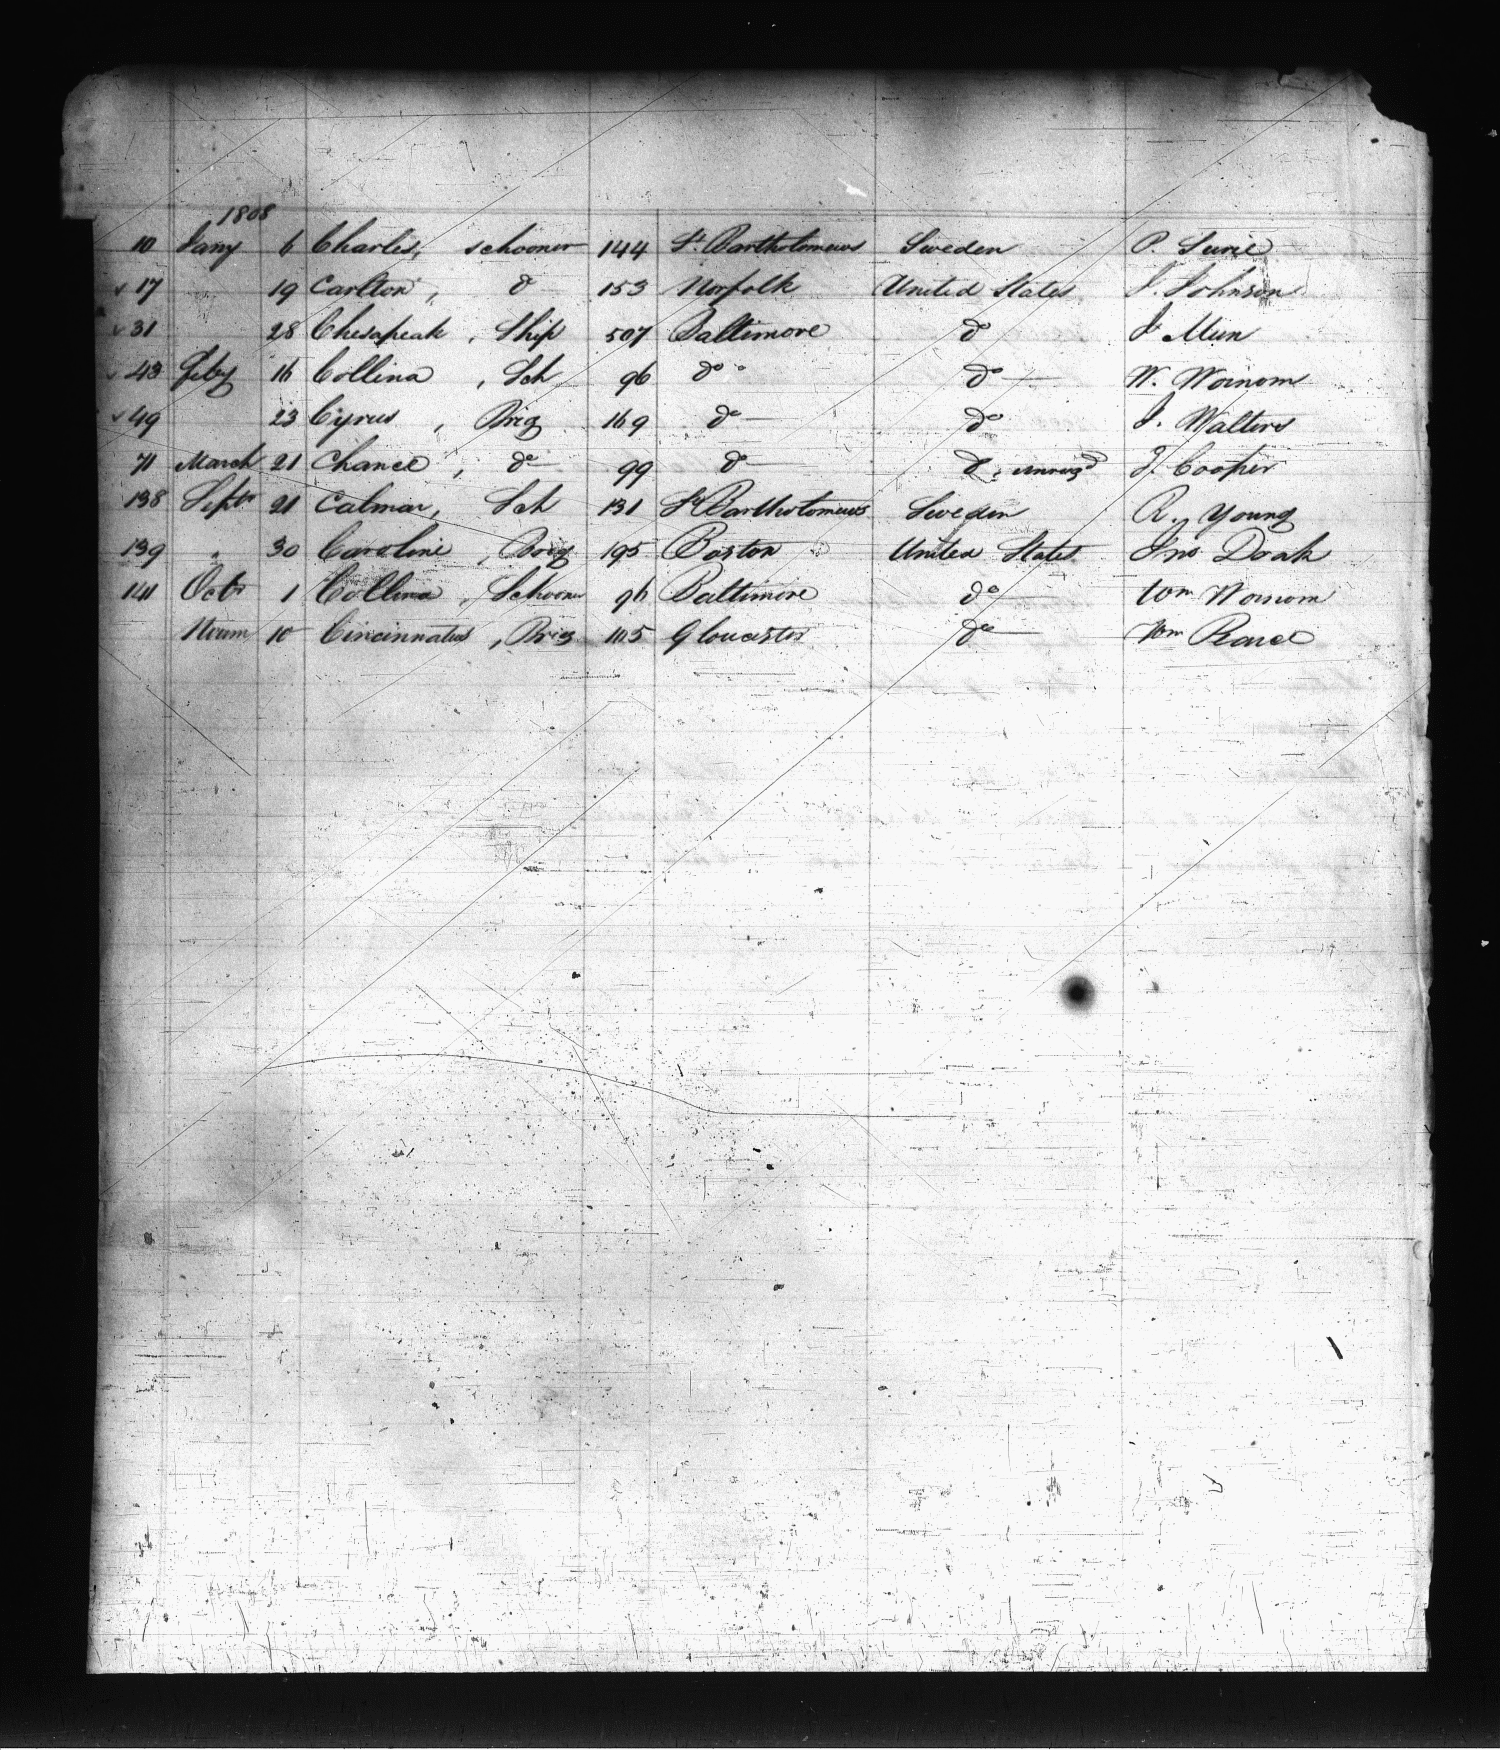 1808
10 Jany 6 Charles, schooner 144 St. Bartholomews Sweden P.
17 19 Carlton, do 153 Norfolk United States J. Johnson
31 28 Chesapeak, Ship 507 Baltimore do J. Mun
43 Feby 16 Collina, Sch 96 do do W. Woinom
49 23 Cyrus, Brig 169 do do J. Walters
71 March 21 Chance, do 99 do do, unregd T. Cooper
138 Septr 21 Calmar, Sch 131 St Bartholomews Sweden R. Young
139 " 30 Caroline, Brig 195 Boston United States Jno Doak
141 Octr 1 Collina, Schooner 96 Baltimore do Wm Woinom
10 Cincinnatus, Brig Gloucester do Wm